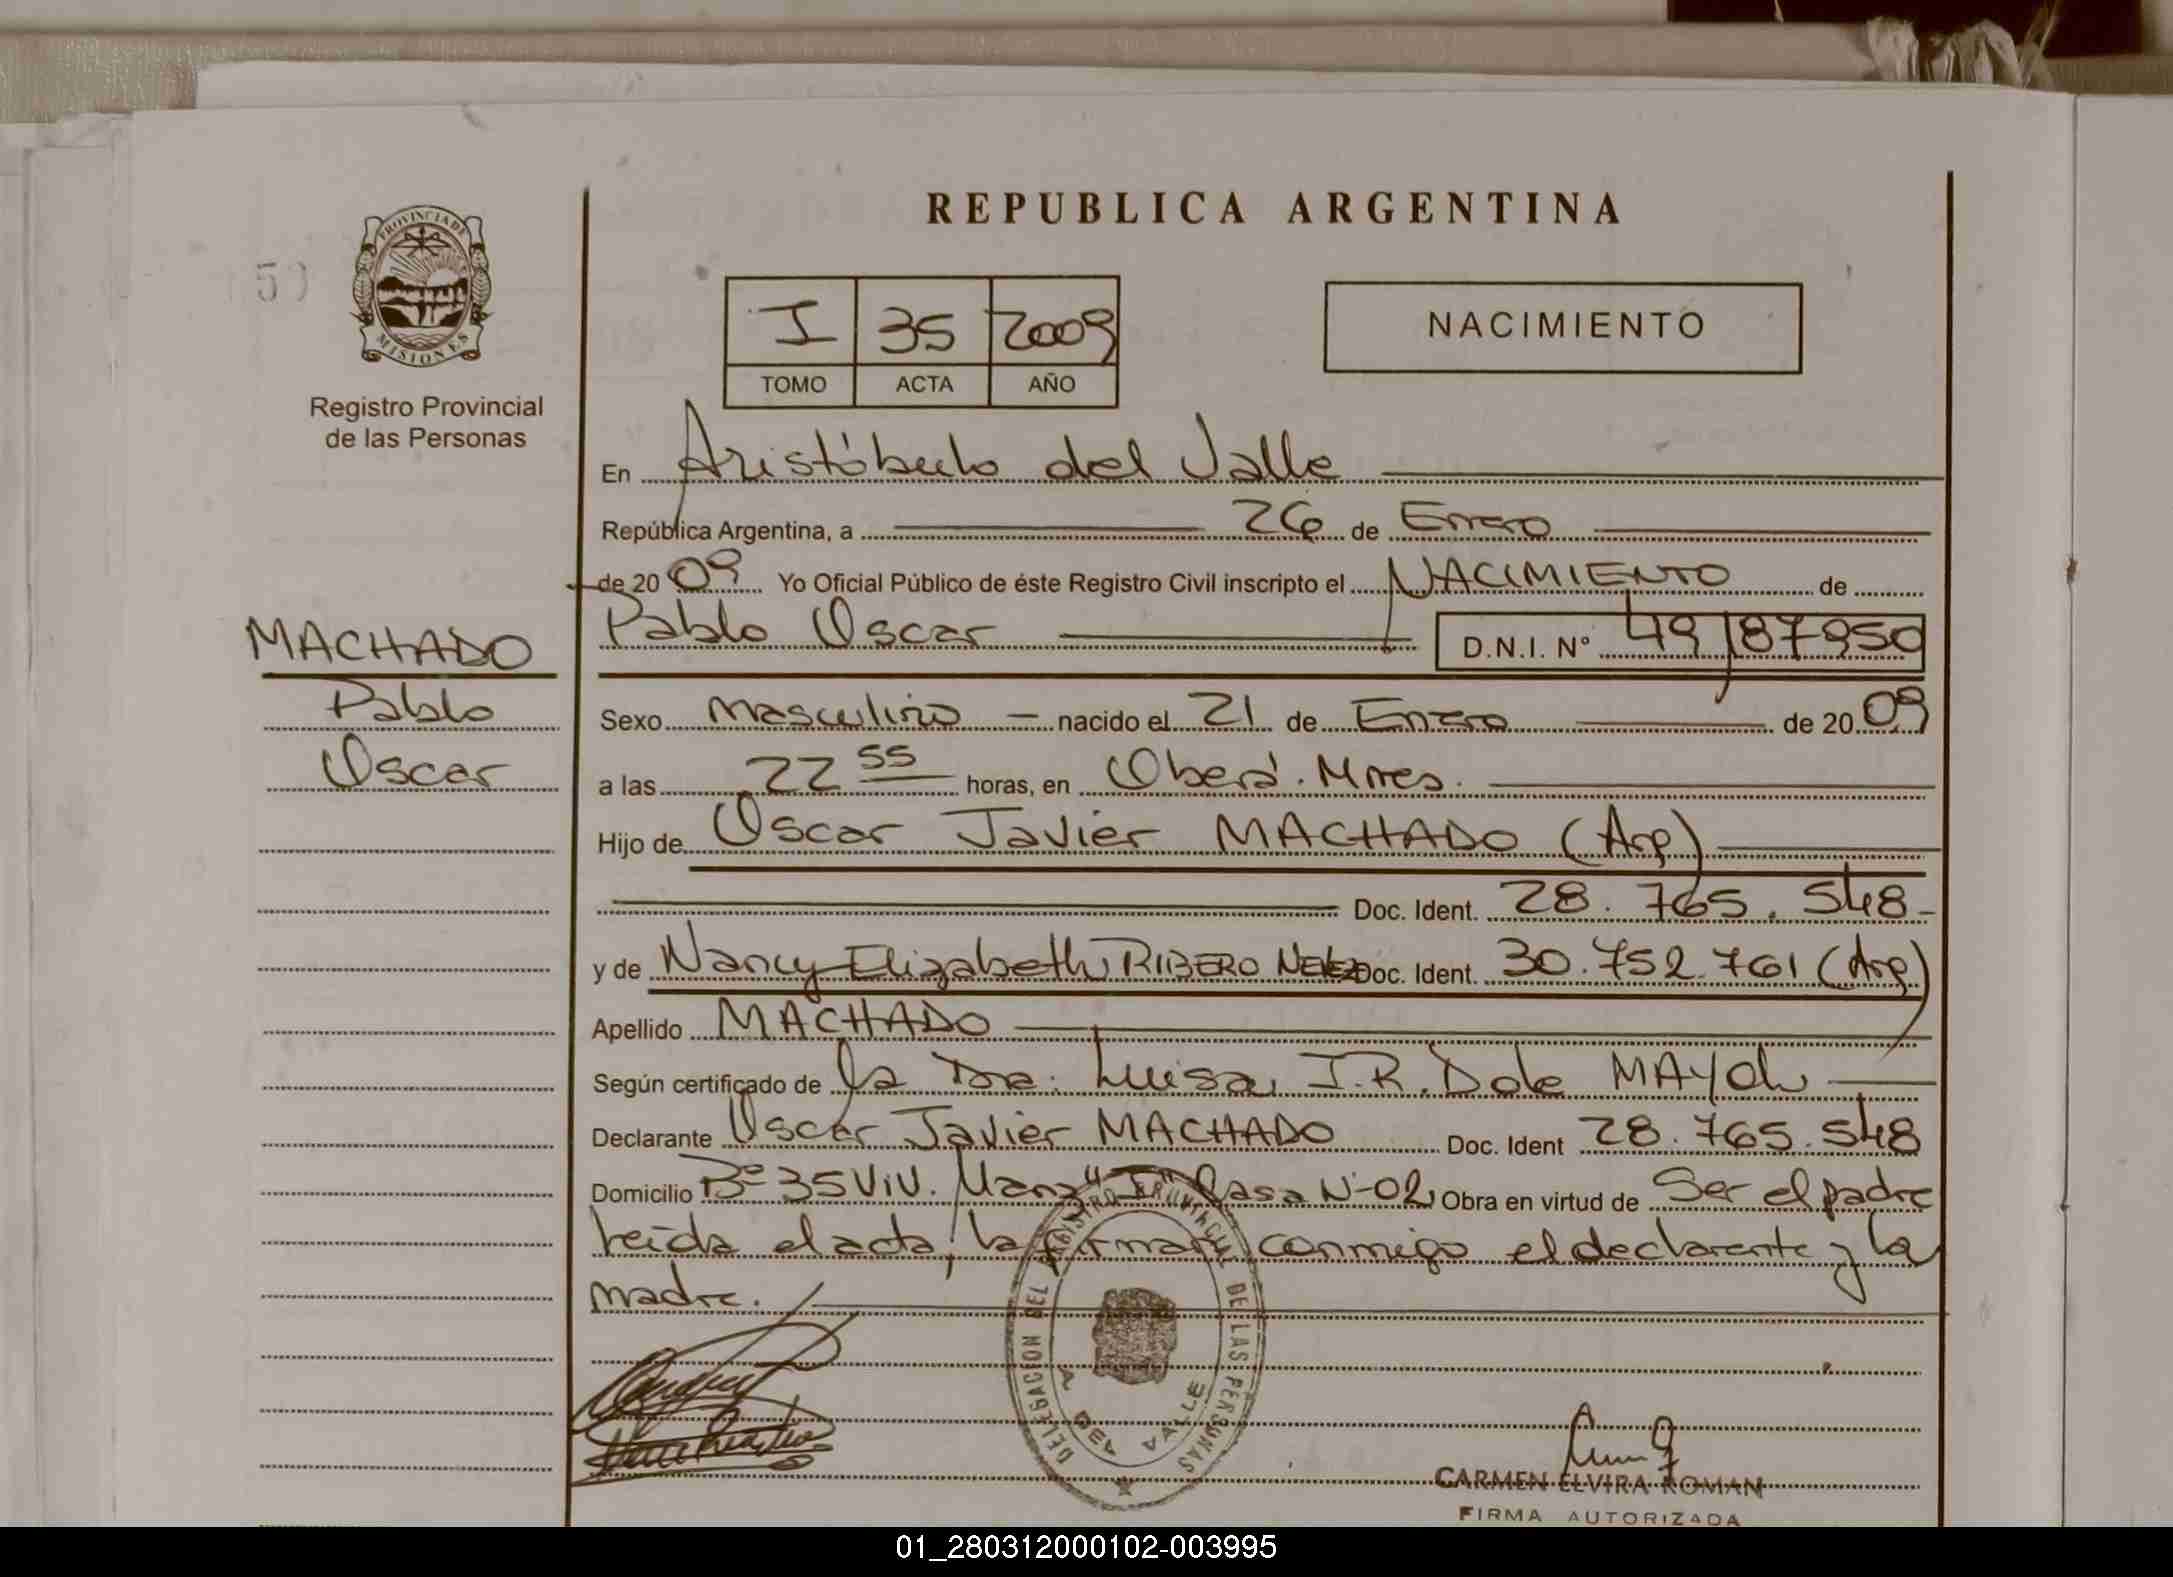 REPUBLICA ARGENTINA
PROVINCIA DE
MISIONES
Registro Provincial
de las Personas
I 35 2009
TOMO ACTA AÑO
NACIMIENTO
En Aristóbulo del Valle
República Argentina, a 26 de Enero
de 2009 Yo Oficial Público de éste Registro Civil inscripto el NACIMIENTO de
MACHADO
Pablo
Oscar
Pablo Oscar D.N.I. Nº 49187950
Sexo Masculino - nacido el 21 de Enero de 2009
a las 22 55 horas, en Oberá. Mnes.
Hijo de Oscar Javier MACHADO (Arg)
Doc. Ident. 28.765.548-
y de Nancy Elizabeth RIBERO Doc. Ident. 30.752.761 (Arg)
Apellido MACHADO
Según certificado de la Dra. Luisa I.R. Dole
Declarante Oscar Javier MACHADO Doc. Ident 28.765.548
Domicilio Bº 35 Viv. Manz "I" Casa Nº 02 Obra en virtud de Ser el padre
Leída el acta, la firman conmigo el declarante y la
madre.
DELEGACION DEL REGISTRO PROVINCIAL DE LAS PERSONAS
A. DEL VALLE
CARMEN ELVIRA ROMAN
FIRMA AUTORIZADA
01_280312000102-003995